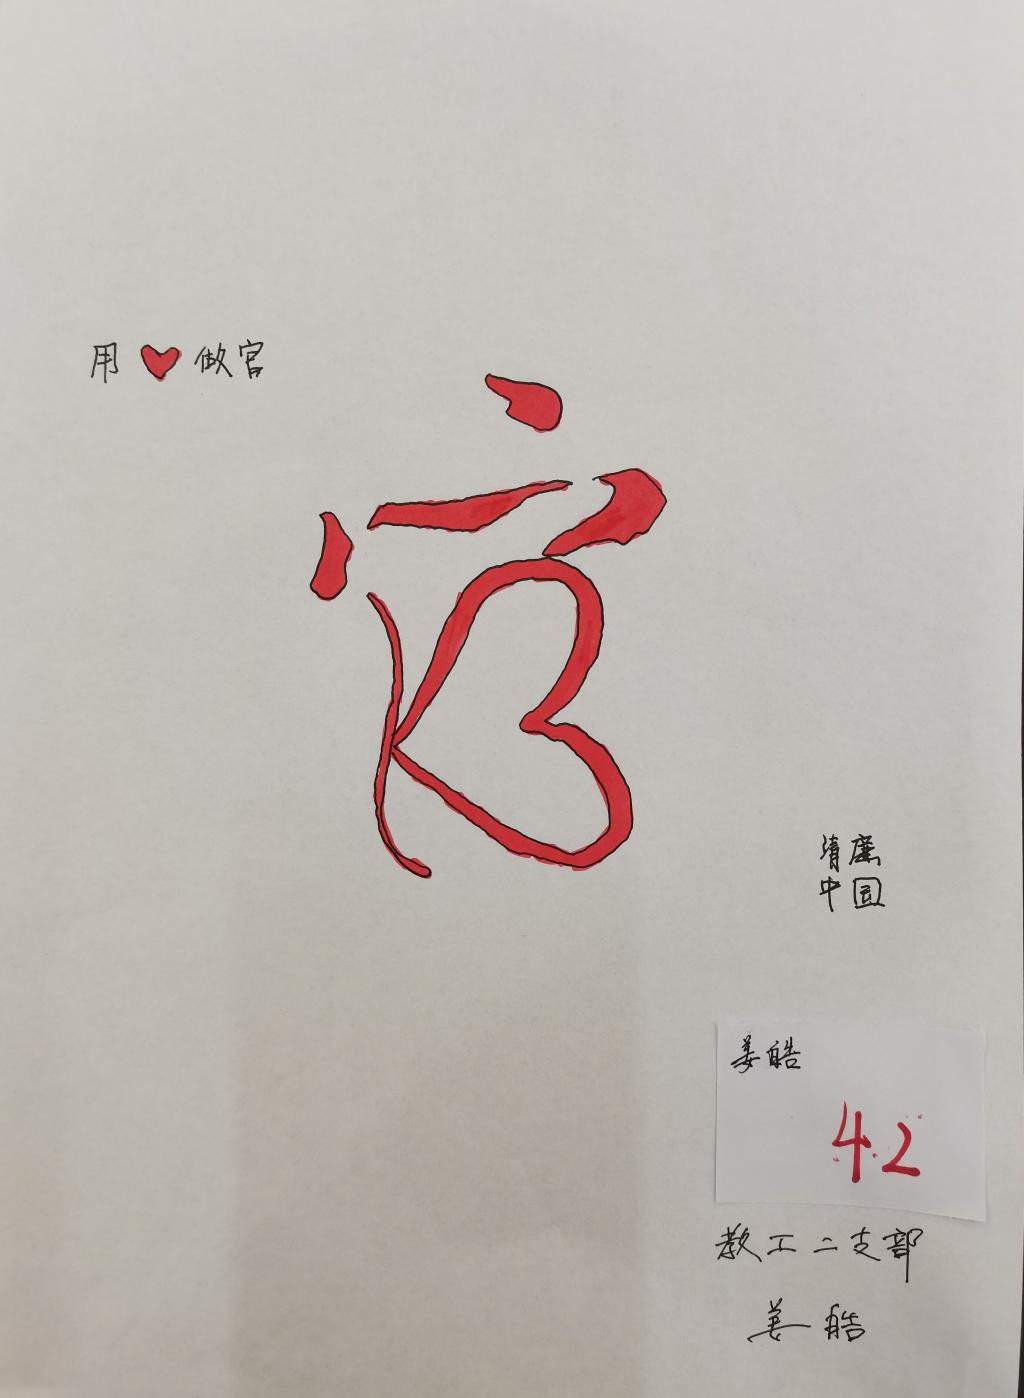 用❤做官
官
清廉
中国
姜皓
42
教工二支部
姜皓